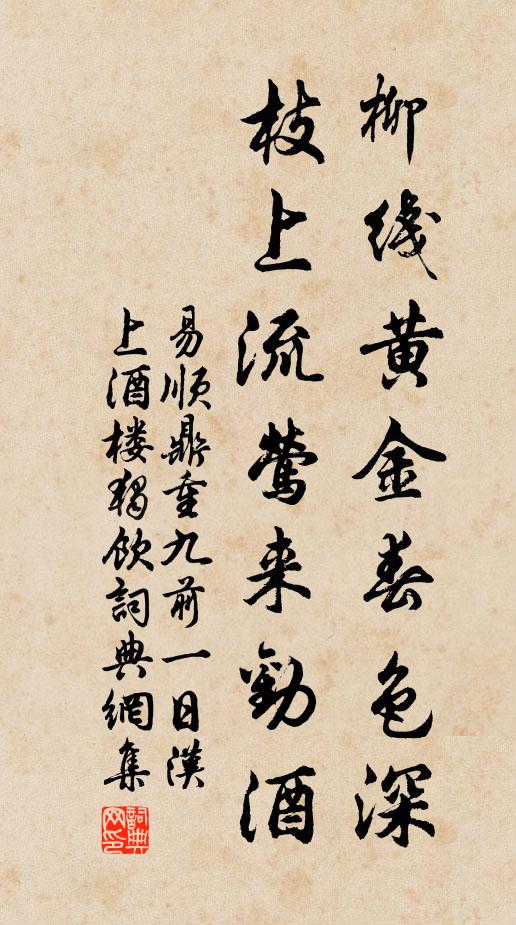 柳线黄金春色深
枝上流莺来勸酒
易順鼎重九前一日漢
上酒楼独飲詞典網集
詞典网印